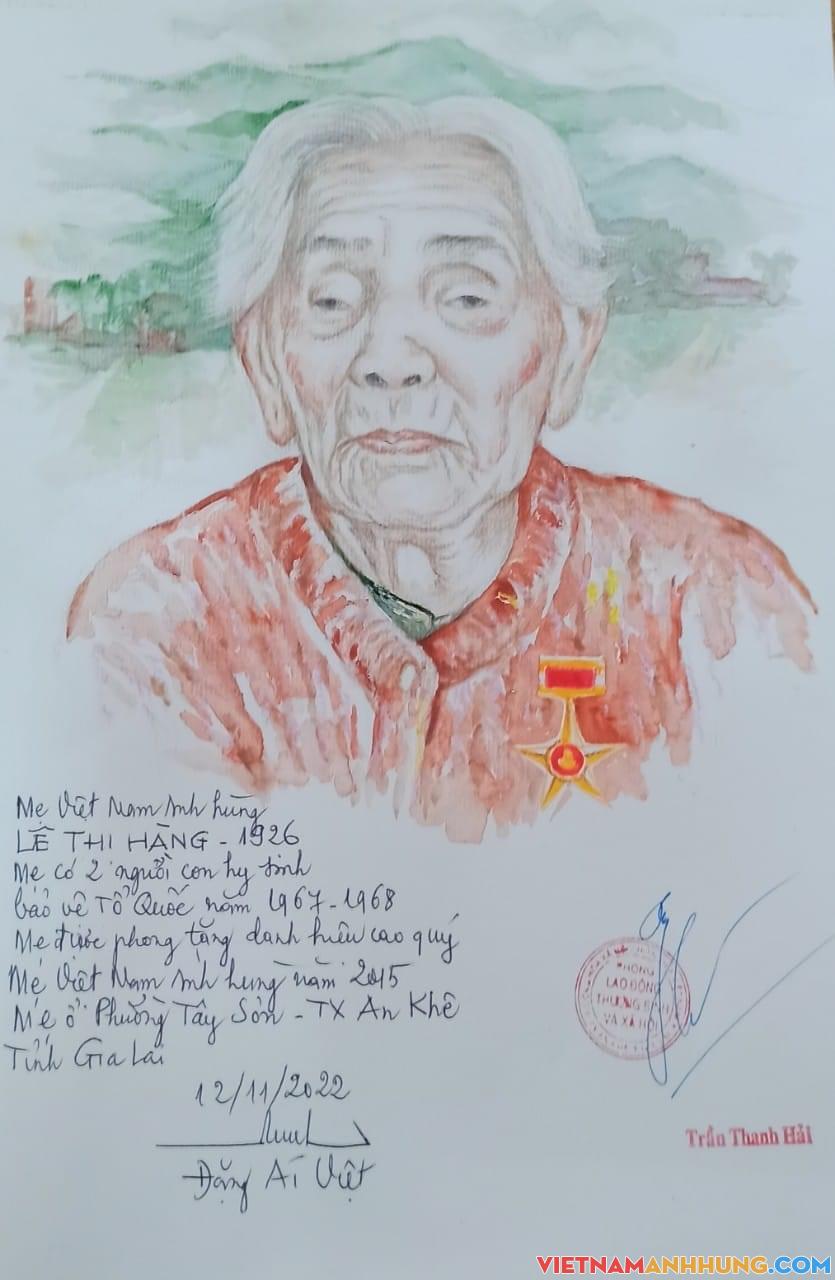 Mẹ Việt Nam Anh hùng
LÊ THI HÀNG - 1926
Mẹ có 2 người con hy sinh
bảo vệ Tổ Quốc năm 1967-1968
Mẹ được phong tặng danh hiệu cao quý
Mẹ Việt Nam Anh hùng năm 2015
Mẹ ở Phường Tây Sơn - TX An Khê
Tỉnh Gia Lai
12/11/2022
Đặng Ái Việt
PHÒNG
LAO ĐỘNG
THƯƠNG BINH
VÀ XÃ HỘI
Trần Thanh Hải
VIETNAMANHHUNG.COM